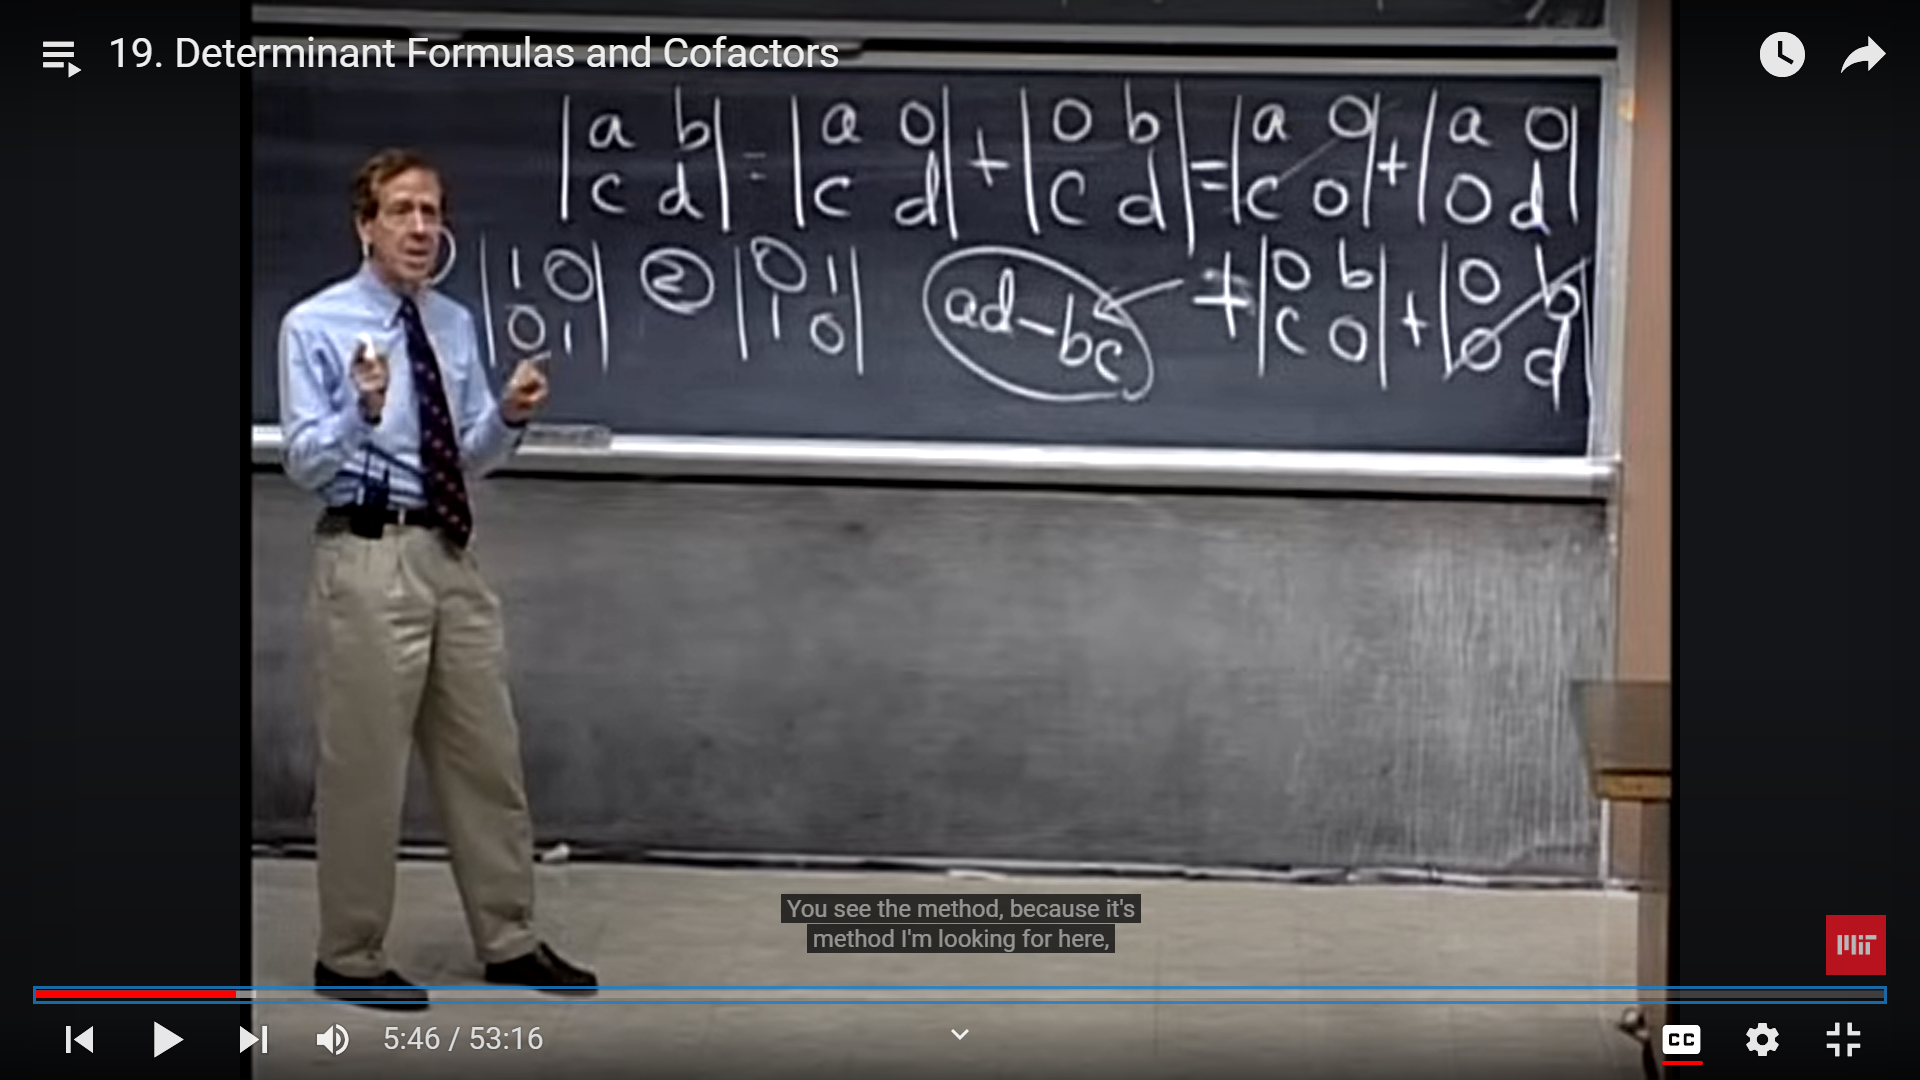 19. Determinant Formulas and Cofactors
|a b| = |a 0| + |0 b| = |a 0| + |a 0|
|c d| |c d| |c d| |c 0| |0 d|
|1 0| ② |0 1| ad-bc + |0 b| + |0 b|
|0 1| |1 0| |c 0| |0 d|
You see the method, because it's
method I'm looking for here,
MIT
5:46 / 53:16
CC